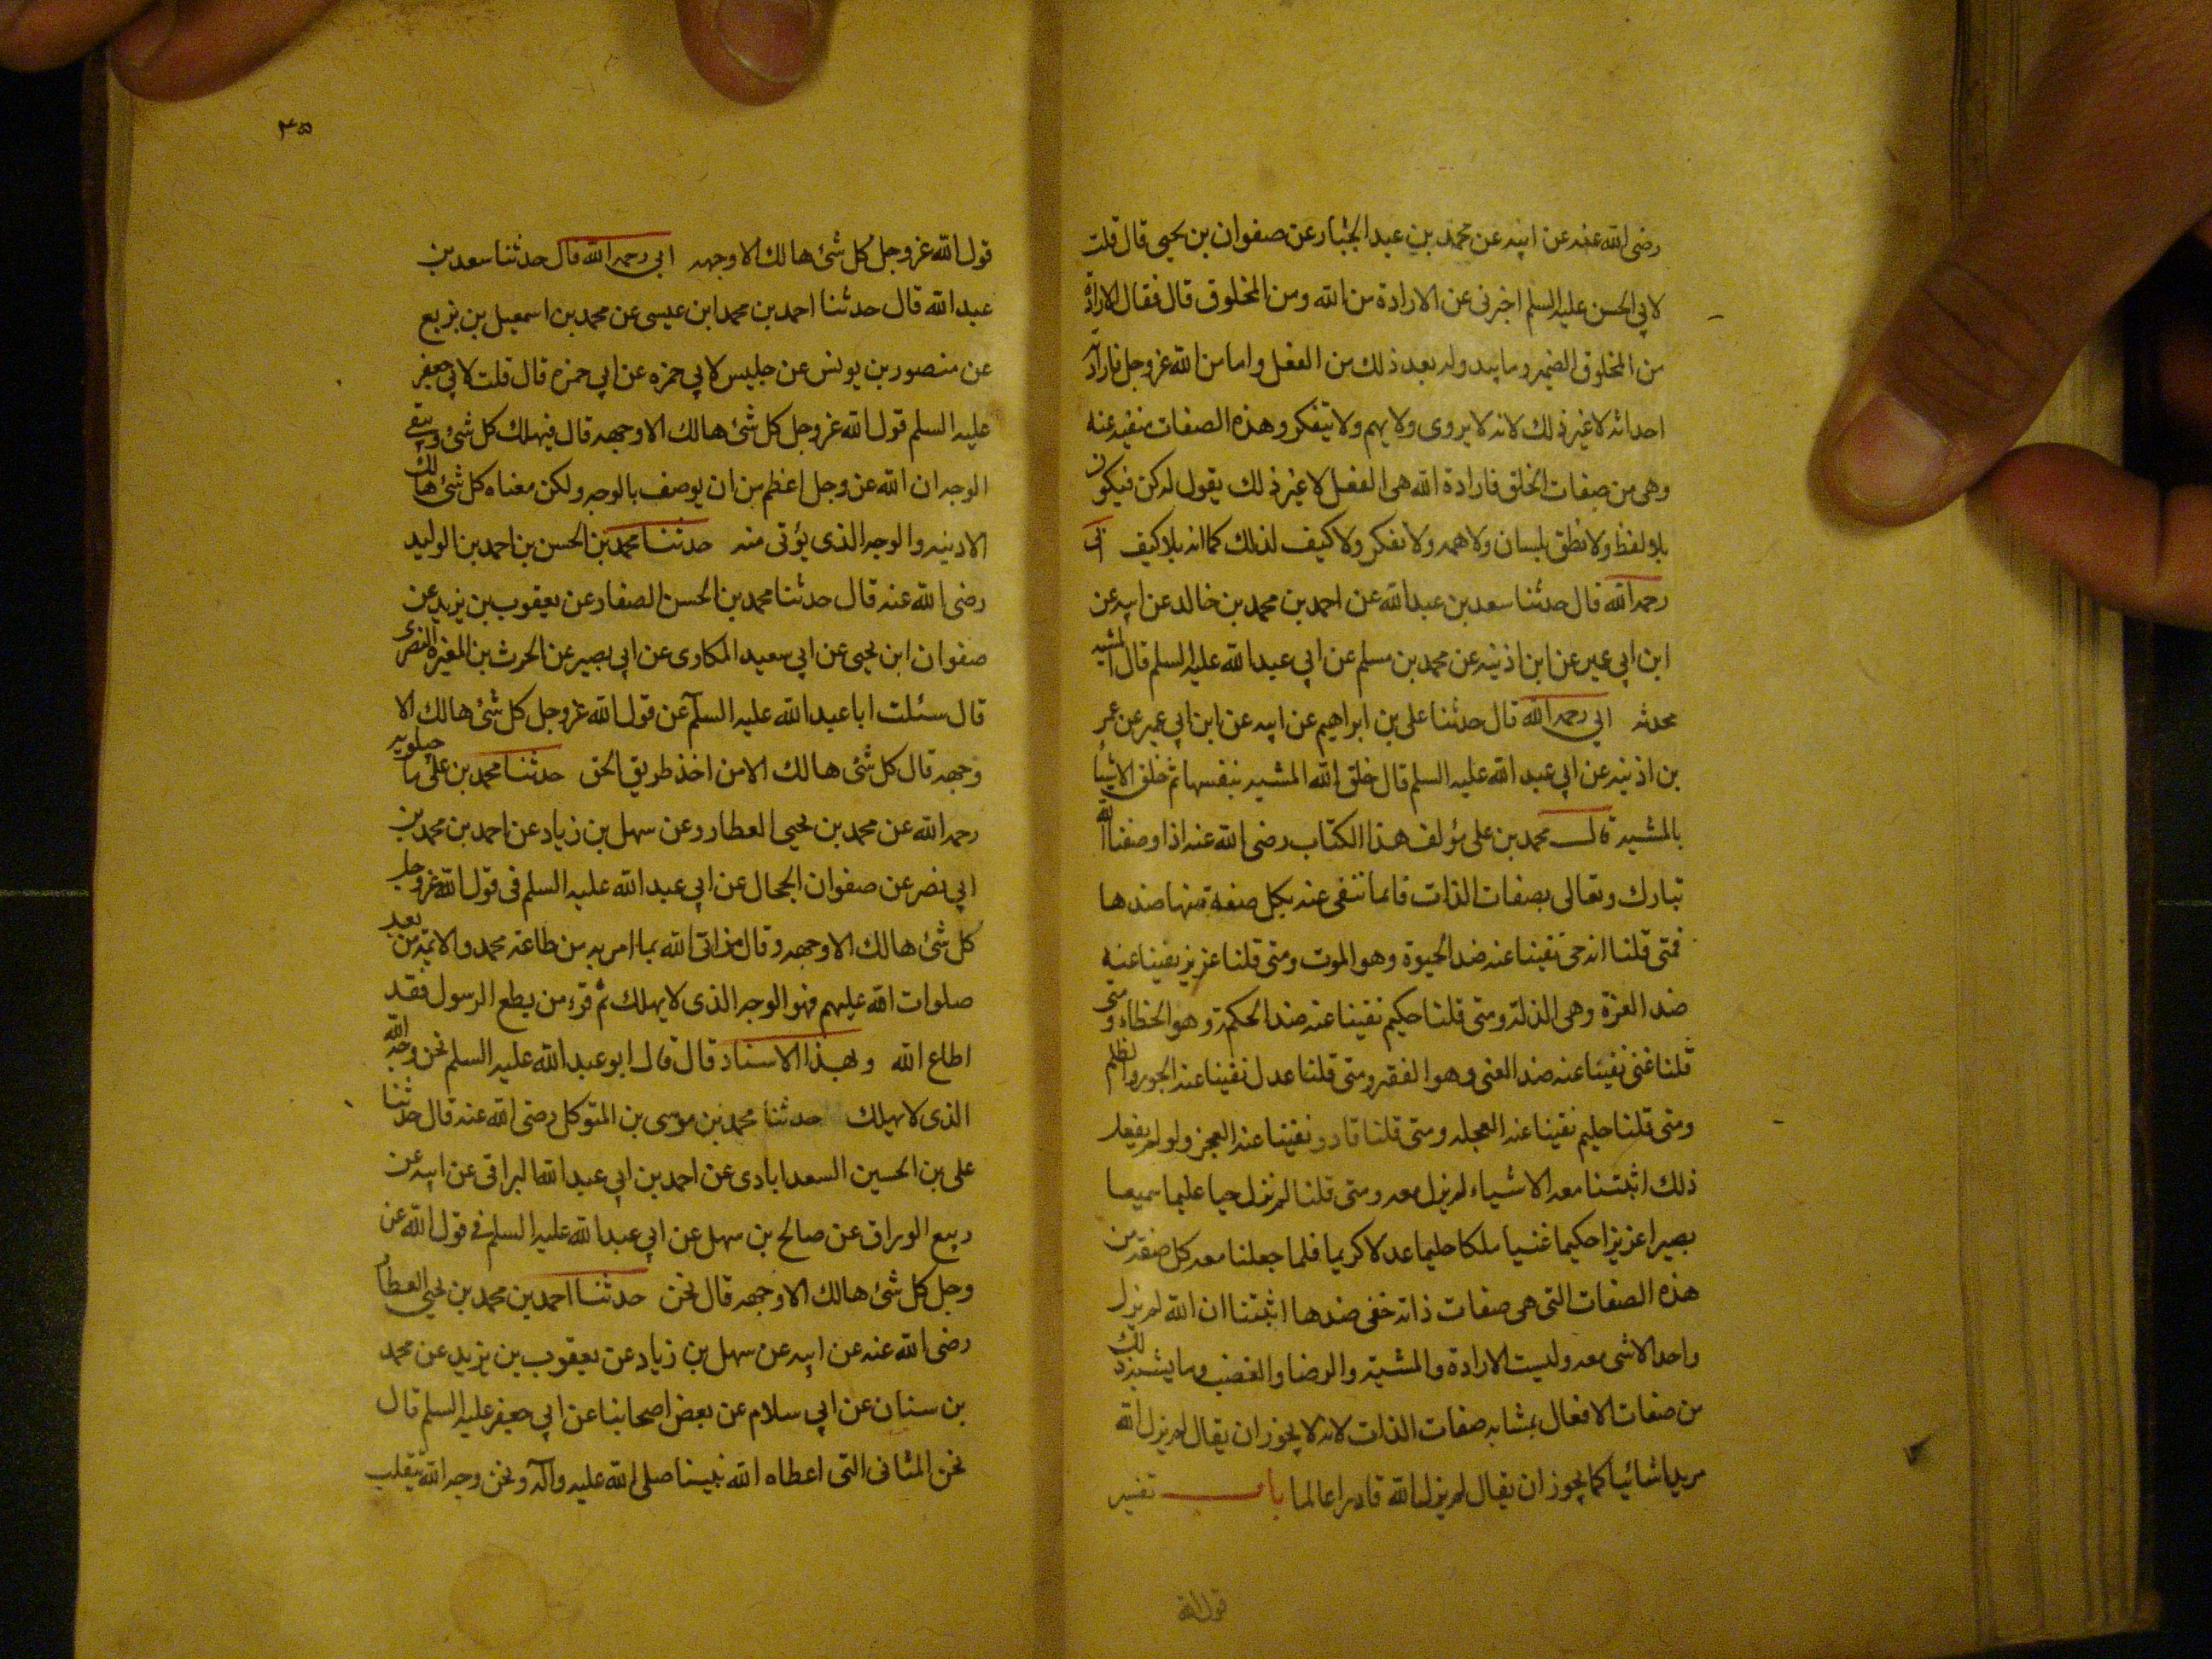 رضى الله عنه عن ابيه عن محمد بن عبد الجبار عن صفوان بن يحيى قال قلت
لابي الحسن عليه السلم اخبرنى عن الارادة من الله ومن المخلوق قال فقال الارادة
من المخلوق الضمير وما يبدو له بعد ذلك من الفعل واما من الله عز وجل فارادته
احداثه لا غير ذلك لانه لا يروى ولا يهم ولا يتفكر وهذه الصفات منفيه عنه
وهى من صفات الخلق فارادة الله هى الفعل لا غير ذلك يقول له كن فيكون
بلا لفظ ولا نطق بلسان ولا همه ولا تفكر ولا كيف لذلك كما انه بلا كيف ابى
رحمه الله قال حدثنا سعد بن عبد الله عن احمد بن محمد بن خالد عن ابيه عن
ابن ابي عمير عن ابن اذينه عن محمد بن مسلم عن ابي عبد الله عليه السلم قال المشيه
محدثه ابي رحمه الله قال حدثنا على بن ابراهيم عن ابيه عن ابن ابي عمير عن عمر
بن اذينه عن ابي عبد الله عليه السلم قال خلق الله المشيه بنفسها ثم خلق الاشيأ
بالمشيه قال محمد بن على مؤلف هذا الكتاب رضى الله عنه اذا وصفنا الله
تبارك وتعالى بصفات الذات فانما ننفى عنه بكل صفة منها ضدها
فمتى قلنا انه حى نفينا عنه ضد الحيوة وهو الموت ومتى قلنا عزيز نفينا عنه
ضد العزة وهى الذلة ومتى قلنا حكيم نفينا عنه ضد الحكمة وهو الخطاء ومتى
قلنا غنى نفينا عنه ضد الغنى وهو الفقر ومتى قلنا عدل نفينا عنه الجور والظلم
ومتى قلنا حليم نفينا عنه العجله ومتى قلنا قادر نفينا عنه العجز ولو لم نفعل
ذلك اثبتنا معه الاشياء لم يزل معه ومتى قلنا لم يزل حيا عليما سميعا
بصيرا عزيزا حكيما غنيا ملكا حليما عدلا كريما فلما جعلنا معه كل صفة من
هذه الصفات التى هى صفات ذاته نفى ضدها اثبتنا ان الله لم يزل
واحد الاشى معه وليست الارادة والمشية والرضا والغضب وما يشبه ذلك
من صفات الافعال بمثابه صفات الذات لانه لا يجوز ان يقال لم يزل الله
مريدا شائيا كما يجوز ان يقال لم يزل الله قادرا عالما باب تفسير
قول الله
٤٥
قول الله عز وجل كل شئ هالك الا وجهه ابى رحمه الله قال حدثنا سعد بن
عبد الله قال حدثنا احمد بن محمد ابن عيسى عن محمد بن اسمعيل بن بزيع
عن منصور بن يونس عن جليس لابي حمزه عن ابي حمزه قال قلت لابي جعفر
عليه السلم قول الله عز وجل كل شئ هالك الا وجهه قال فيهلك كل شئ ويبقى
الوجه ان الله عز وجل اعظم من ان يوصف بالوجه ولكن معناه كل شئ هالك
الا دينه والوجه الذى يؤتى منه حدثنا محمد بن الحسن بن احمد بن الوليد
رضى الله عنه قال حدثنا محمد بن الحسن الصفار عن يعقوب بن يزيد عن
صفوان ابن يحيى عن ابي سعيد المكاوى عن ابي بصير عن الحرث بن المغيره النصرى
قال سئلت ابا عبد الله عليه السلم عن قول الله عز وجل كل شئ هالك الا
وجهه قال كل شئ هالك الا من اخذ طريق الحق حدثنا محمد بن على ماجيلويه
رحمه الله عن محمد بن يحيى العطار وعن سهل بن زياد عن احمد بن محمد بن
ابي نصر عن صفوان الجمال عن ابي عبد الله عليه السلم فى قول الله عز وجل
كل شئ هالك الا وجهه وقال من اتى الله بما امر به من طاعة محمد والائمة من بعد
صلوات الله عليهم فهو الوجه الذى لا يهلك ثم قرء من يطع الرسول فقد
اطاع الله وبهذا الاسناد قال قال ابو عبد الله عليه السلم نحن وجه الله
الذى لا يهلك حدثنا محمد بن موسى بن المتوكل رضى الله عنه قال حدثنا
على بن الحسين السعد ابادى عن احمد بن ابي عبد الله البراقى عن ابيه عن
ربيع الوراق عن صالح بن سهل عن ابي عبد الله عليه السلم فى قول الله عز
وجل كل شئ هالك الا وجهه قال نحن حدثنا احمد بن محمد بن يحيى العطار
رضى الله عنه عن ابيه عن سهل بن زياد عن يعقوب بن يزيد عن محمد
بن سنان عن ابي سلام عن بعض اصحابنا عن ابي جعفر عليه السلم قال
نحن المثانى التى اعطاه الله نبينا صلى الله عليه وآله ونحن وجه الله نتقلب